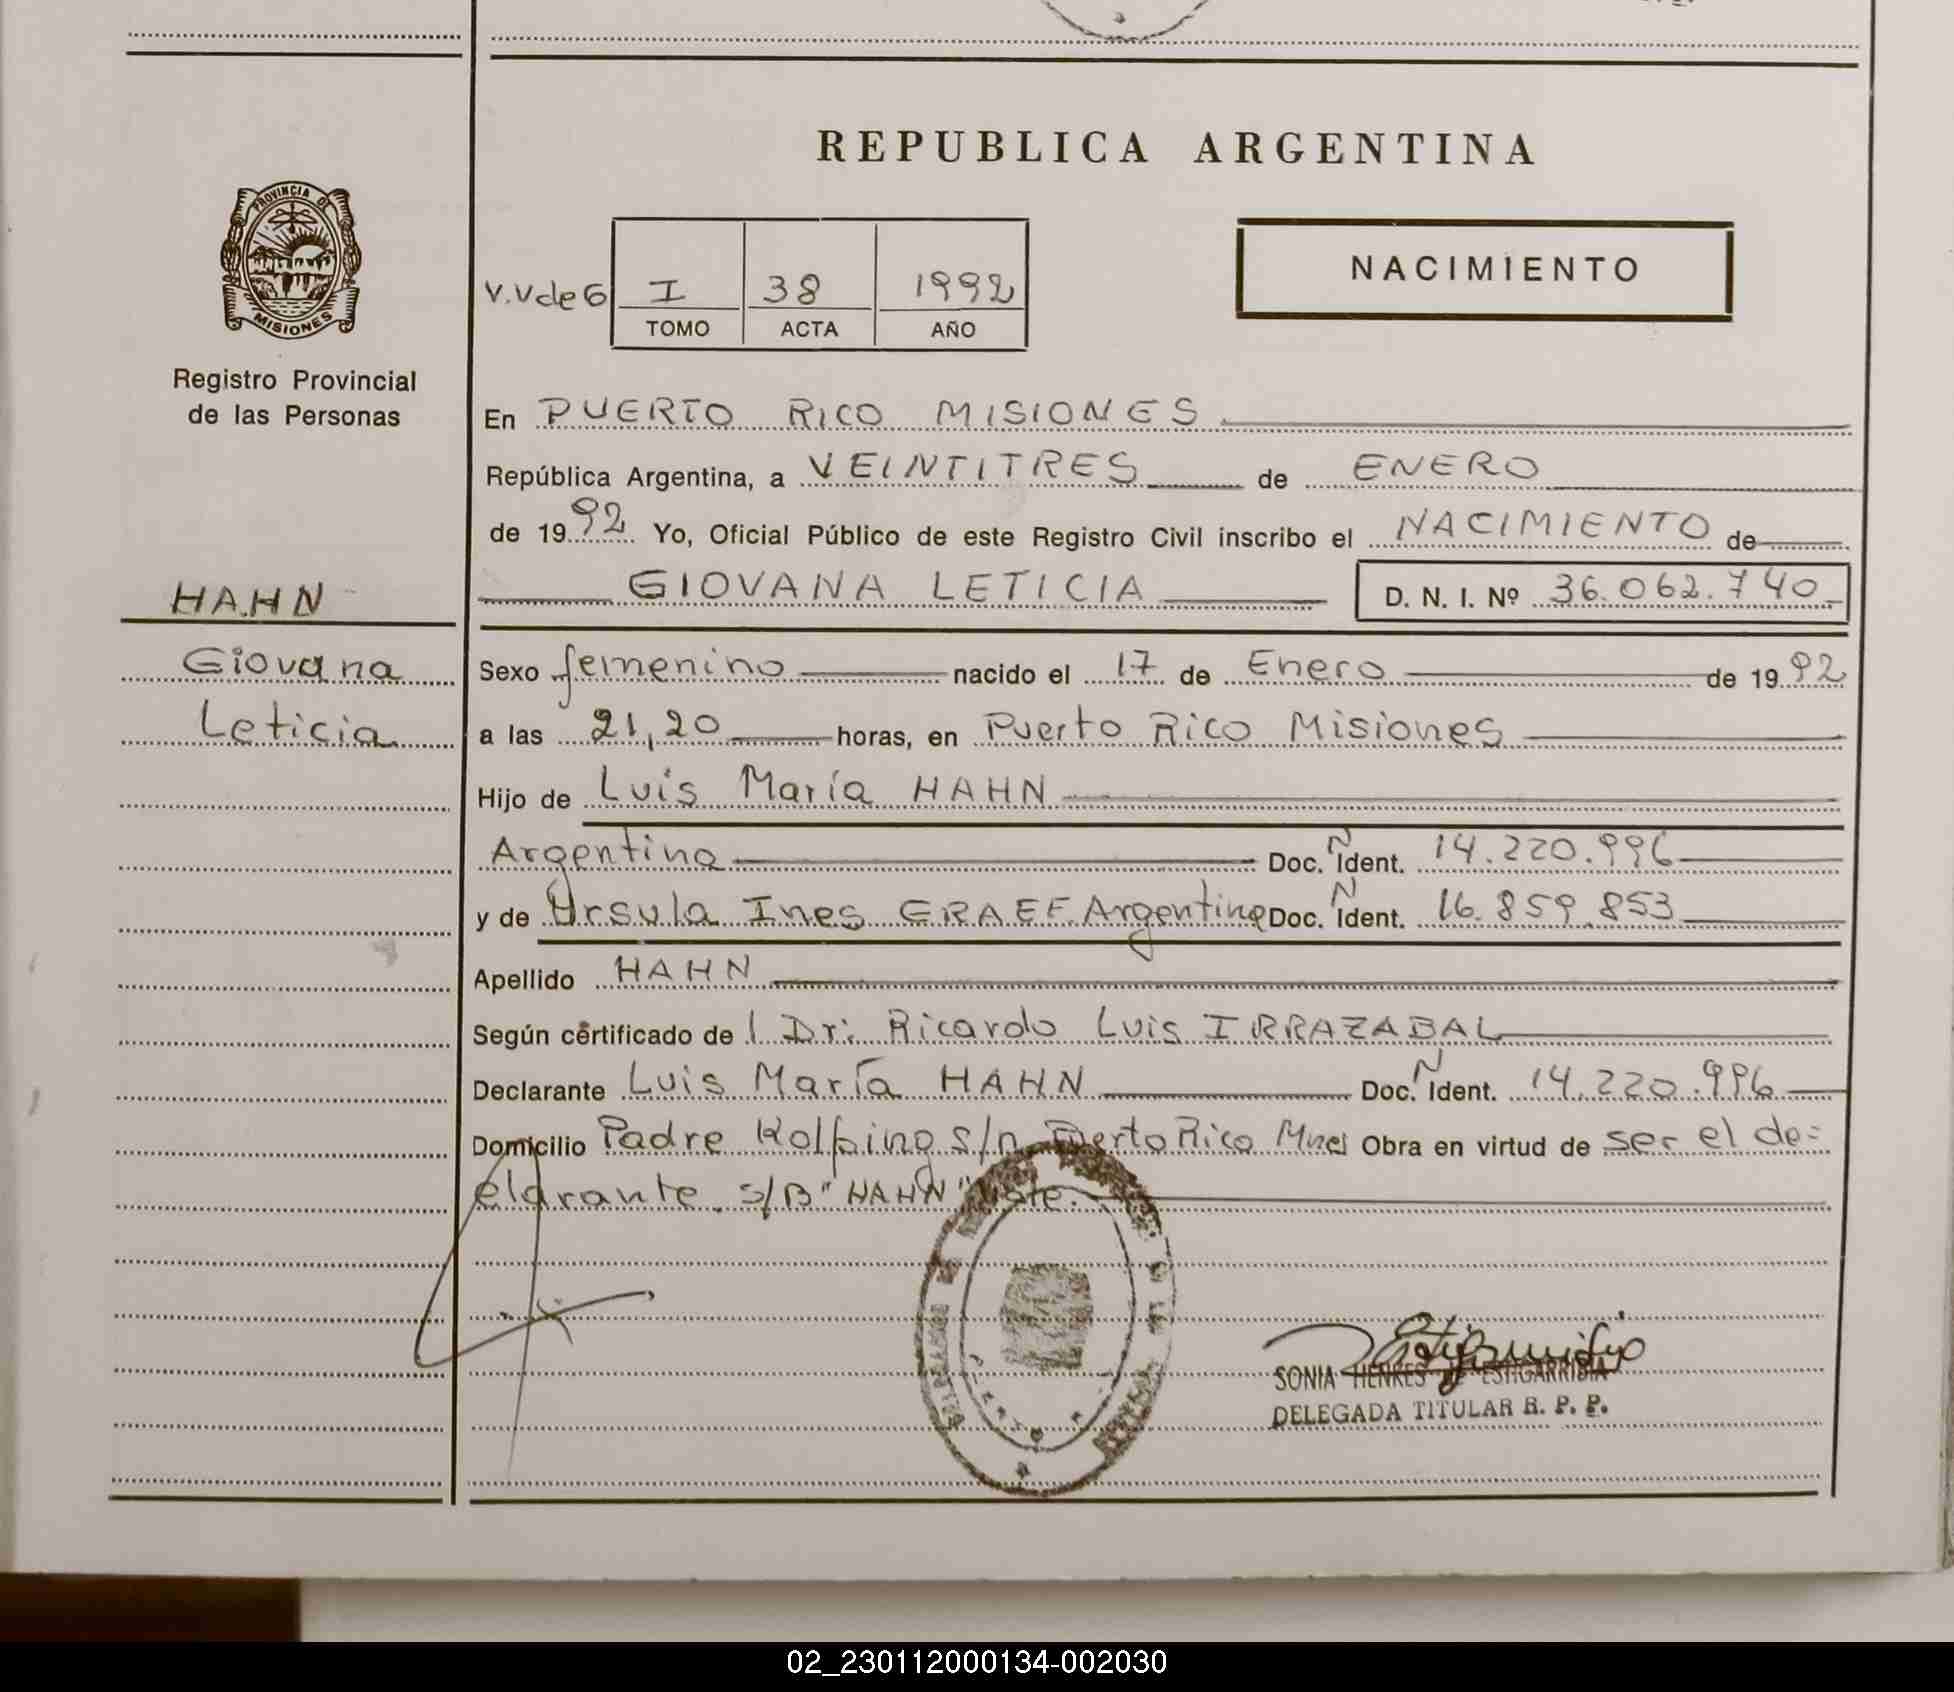 REPUBLICA ARGENTINA
PROVINCIA DE
MISIONES
Registro Provincial
de las Personas
V.V de G
I 38 1992
TOMO ACTA AÑO
NACIMIENTO
En PUERTO RICO MISIONES
República Argentina, a VEINTITRES de ENERO
de 1992 Yo, Oficial Público de este Registro Civil inscribo el NACIMIENTO de
GIOVANA LETICIA D. N. I. Nº 36.062.740
HAHN
Giovana
Leticia
Sexo femenino nacido el 17 de Enero de 1992
a las 21,20 horas, en Puerto Rico Misiones
Hijo de Luis María HAHN
Argentina Doc. N Ident. 14.220.996
y de Ursula Ines GRAEF Argentina Doc. N Ident. 16.859.853
Apellido HAHN
Según certificado de l Dr: Ricardo Luis IRRAZABAL
Declarante Luis María HAHN Doc. N Ident. 14.220.996
Domicilio Padre Kolping s/n Puerto Rico Mnes Obra en virtud de ser el de=
clarante. s/B "HAHN" Vale.
SONIA HENKES DE ESTIGARRIBIA
DELEGADA TITULAR R. P. P.
02_230112000134-002030